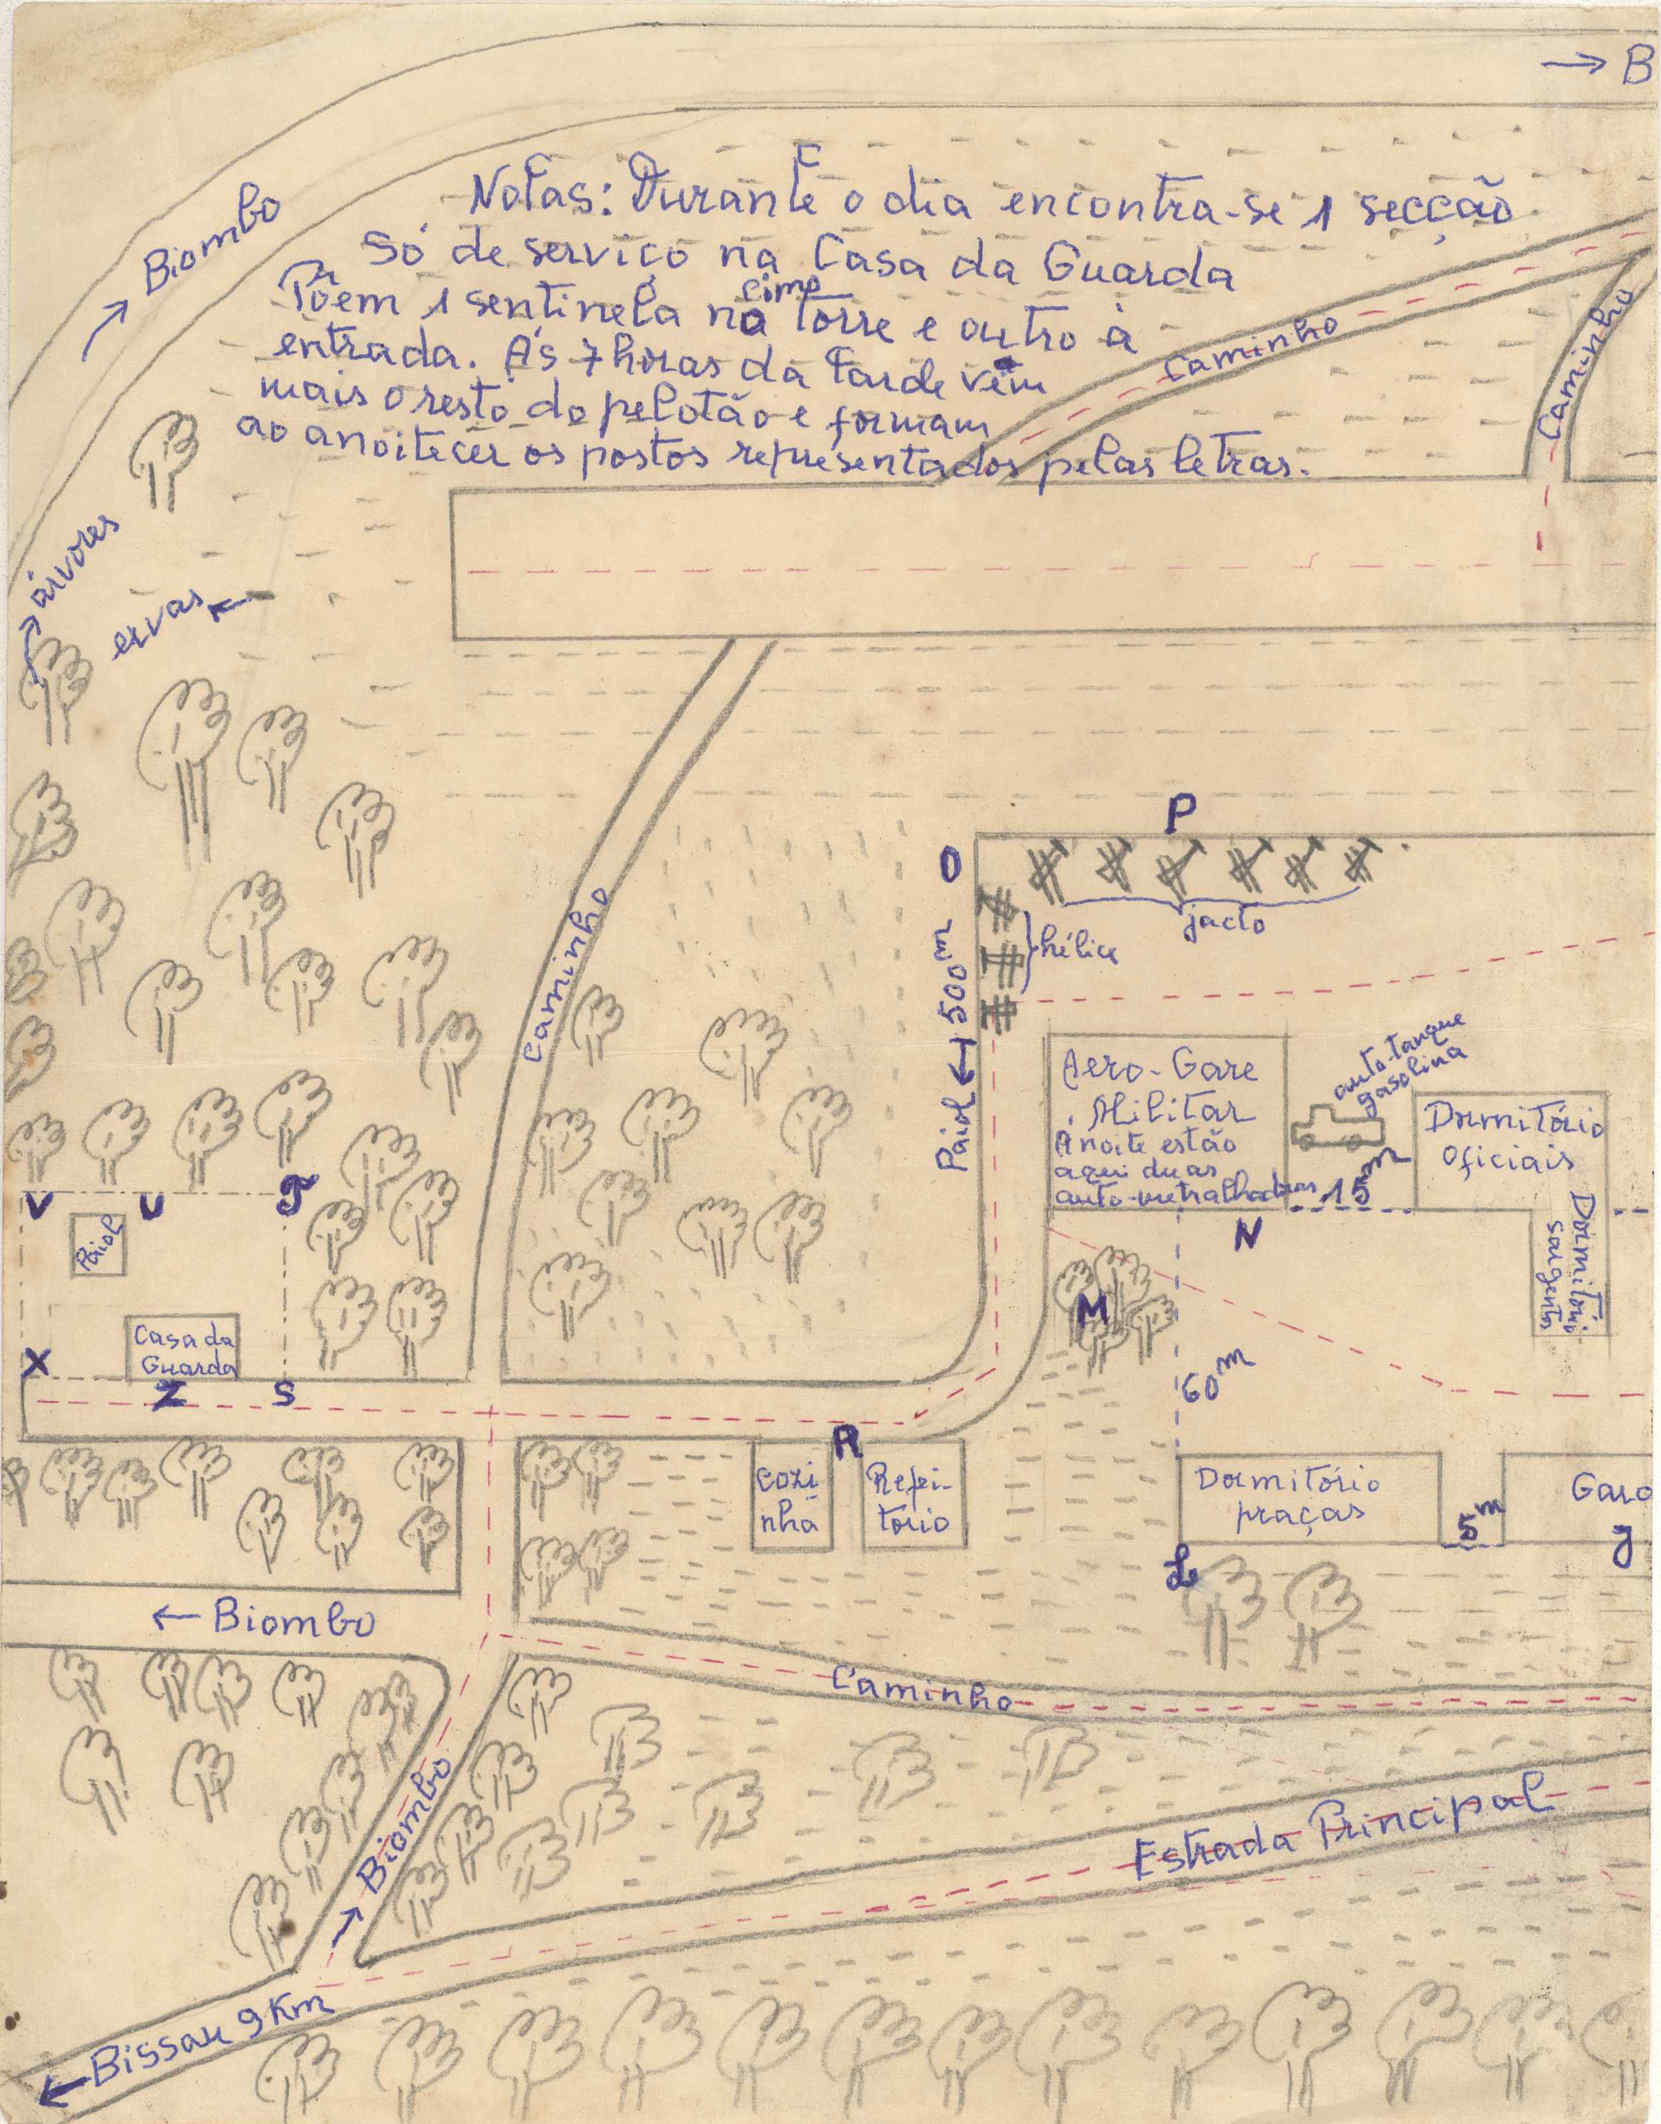 → B
Biombo
Notas: Durante o dia encontra-se 1 secção
Só de serviço na Casa da Guarda
Põem 1 sentinela no cimo torre e outro à
entrada. Às 7 horas da tarde vêm
mais o resto do pelotão e formam
ao anoitecer os postos representados pelas letras.
Caminho
Caminho
árvores
ervas ←
P
O
jacto
hélice
Caminho
Paiol ← 500m
auto-tanque
gasolina
Aero-Gare
Militar
À noite estão
aqui duas
auto-metralhadoras
15m
Dormitório
oficiais
Dormitório
sargentos
V U T
Paiol
N
M
Casa da
Guarda
X Z S
60m
R
Cozi-
nha
Refei-
tório
Dormitório
praças
5m
Gara
J
L
← Biombo
Caminho
→ Biombo
Estrada Principal
← Bissau 9 Km